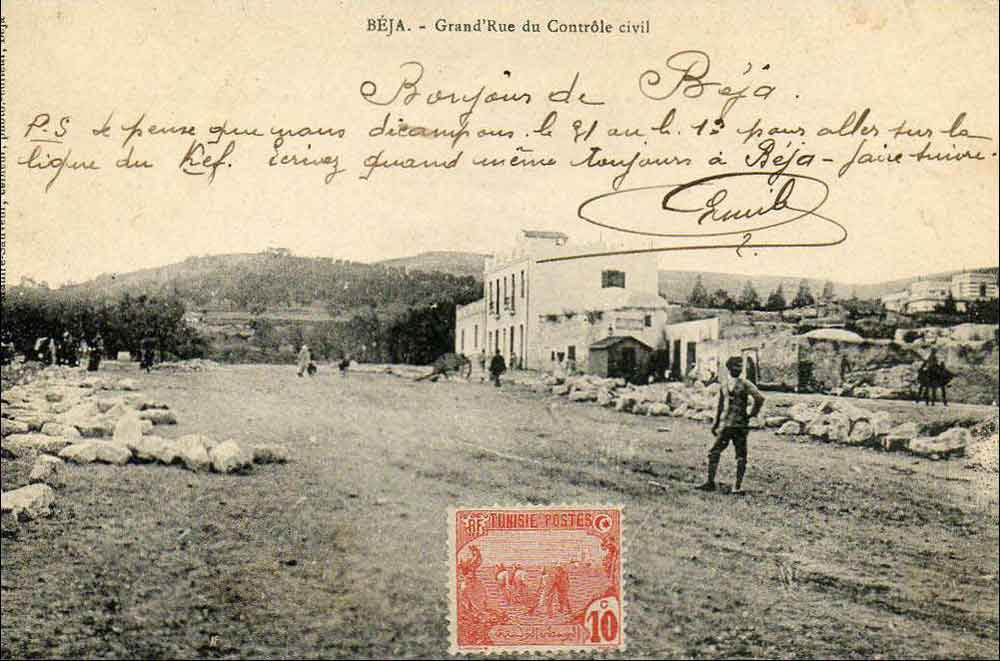 BÉJA. - Grand'Rue du Contrôle civil
Bonjour de Béja.
P.S Je pense que nous décampons le ou le 13 pour aller sur la
ligne du Kef. Ecrivez quand même toujours à Béja - faire suivre.
Emile
RF TUNISIE POSTES
10
C